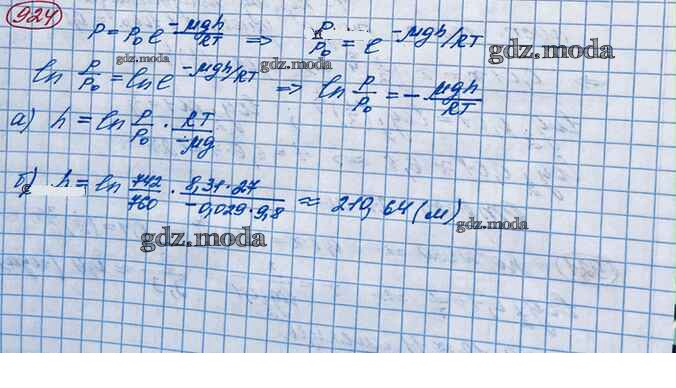 924
P = P₀ e^(-μgh/RT) ⇒ P/P₀ = e^(-μgh/RT)
gdz.moda
gdz.moda
ln P/P₀ = ln e^(-μgh/RT) ⇒ ln P/P₀ = - μgh/RT
gdz.moda
gdz.moda
а) h = ln P/P₀ · RT/-μg
б) h = ln 742/760 · 8,31·27/-0,029·9,8 ≈ 210,64 (м)
gdz.moda
gdz.moda